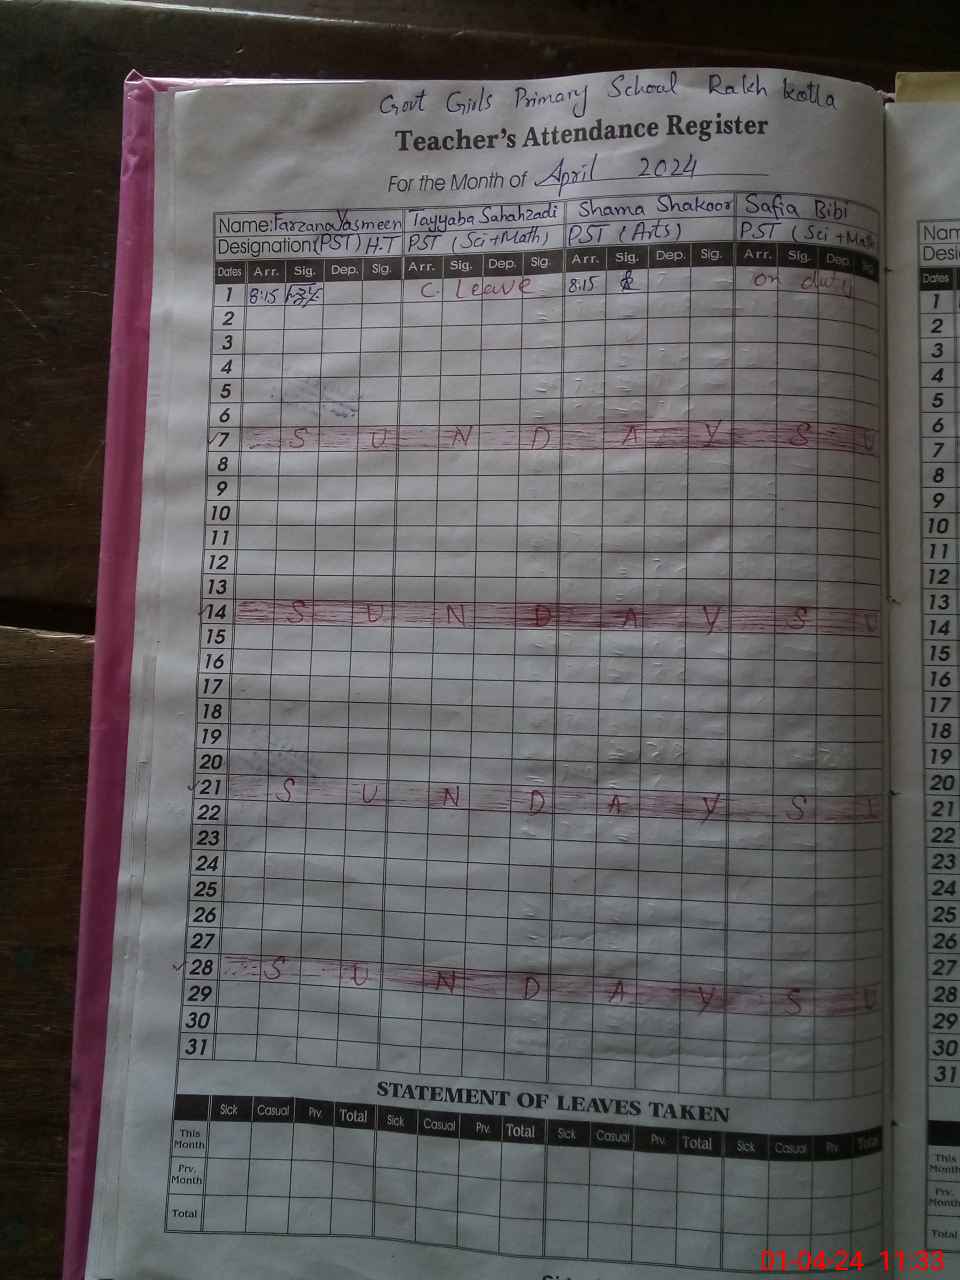 Govt Girls Primary School Rakh Kotla
Teacher's Attendance Register
For the Month of April 2024
Name: Farzana Yasmeen Tayyaba Sahahzadi Shama Shakoor Safia Bibi
Designation (PST) H.T PST (Sci +Math) PST (Arts) PST (Sci +Math)
Dates Arr. Sig. Dep. Sig. Arr. Sig. Dep. Sig. Arr. Sig. Dep. Sig. Arr. Sig. Dep. Sig.
1 8:15 C. Leave 8:15 on duty
2
3
4
5
6
7 S U N D A Y S U
8
9
10
11
12
13
14 S U N D A Y S U
15
16
17
18
19
20
21 S U N D A Y S
22
23
24
25
26
27
28 S U N D A Y S U
29
30
31
STATEMENT OF LEAVES TAKEN
Sick Casual Prv. Total Sick Casual Prv. Total Sick Casual Prv. Total Sick Casual Prv. Total
This Month
Prv. Month
Total
Nam
Desi
Dates
1
2
3
4
5
6
7
8
9
10
11
12
13
14
15
16
17
18
19
20
21
22
23
24
25
26
27
28
29
30
31
This Month
Prv. Month
Total
01-04-24 11:33